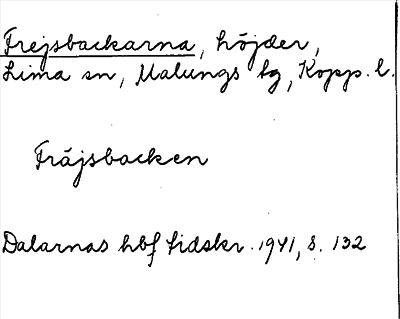 Frejsbackarna, höjder,
Lima sn, Malungs tg, Kopp. l.
Fräjsbacken
Dalarnas hbf tidskr. 1941, s. 132